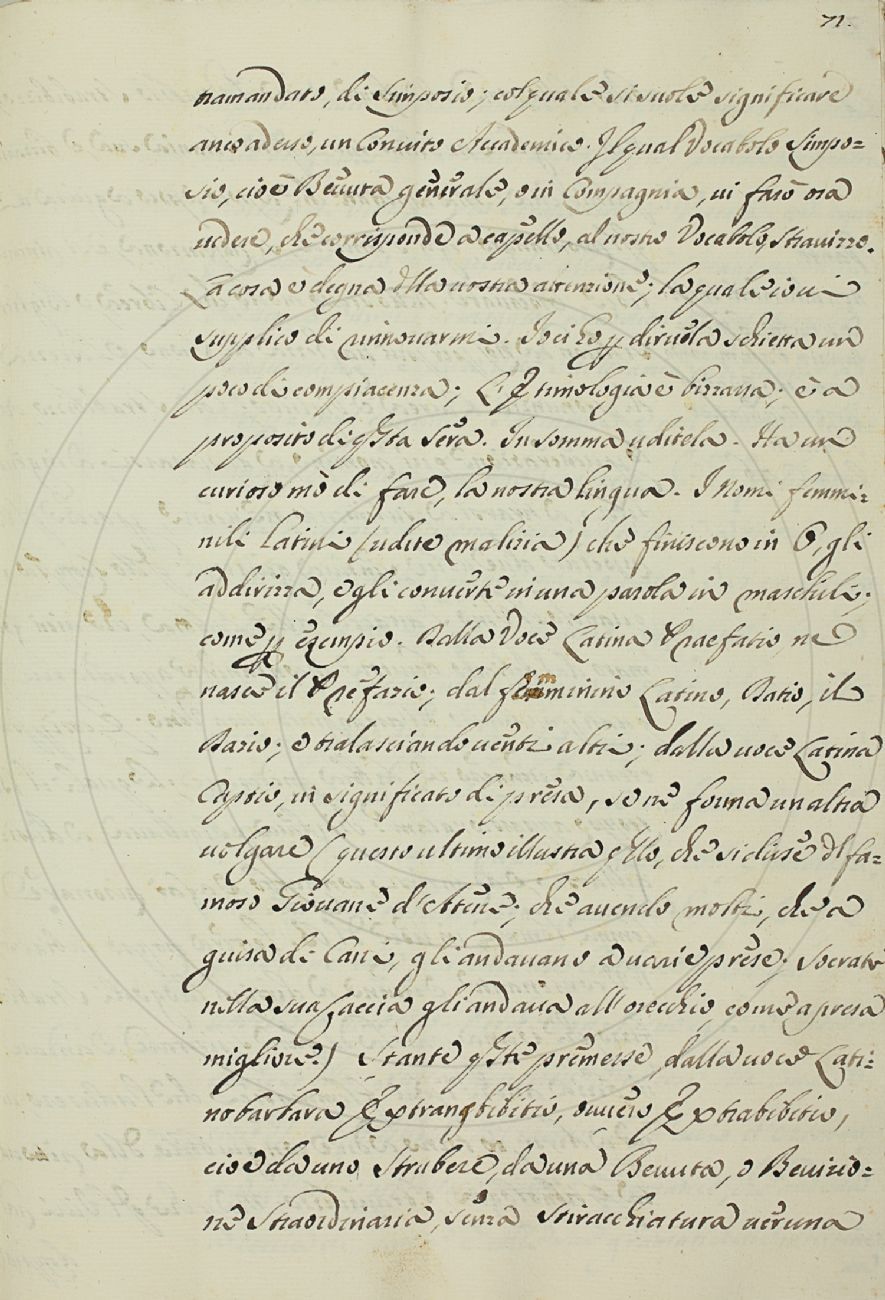 71.
tramandato, di Simposio; col quale si suole significare
anco adesso, un Convito Accademico. Il qual Vocabolo Simpo=
sio, cioè Bevuta generale, o in Compagnia, vi farò ora
udere, che corrisponde a capello, al nostro Vocabolo, Stravizzo.
La cosa è degna dlla vostra attenzione; la quale io vi
supplico di rinnovarmi. Io ci ho p dirvela schietta un
poco di compiacenza; L'Etimologia è bizzarra; e a
proposito di qsta sera. In somma uditela. Ha un
curioso mō di fare, la nostra lingua. I Nomi femmi=
nili Latini (udite malizia) che finiscono in O, gli
addirizza, e gli converte in una parola in maschile;
come p esempio. Dalla Voce Latina Praefatio ne
nasce il Prefazio; dal femminino Latino, Ratio, il
Razio; e tralasciando venti altri; dalla voce Latina
Captio, in significato di presa, se ne forma un altra
volgare (questo ultimo illustra qllo, che si disse dl fa=
moso Giovane d'Atene; che avendo molti, che a
guisa di Cani, gli andavano a varie prese; Socrate
nella sua Caccia gli andava all'orecchio, come a presa
migliore.) Stante qste premesse, dalla voce Lati=
nobarbara Extrangbibitio, ovvero Extrabibitio,
cioe da uno Strabere, da una Bevuta, o Bevizio=
ne Straordinaria, senza stiracchiatura veruna